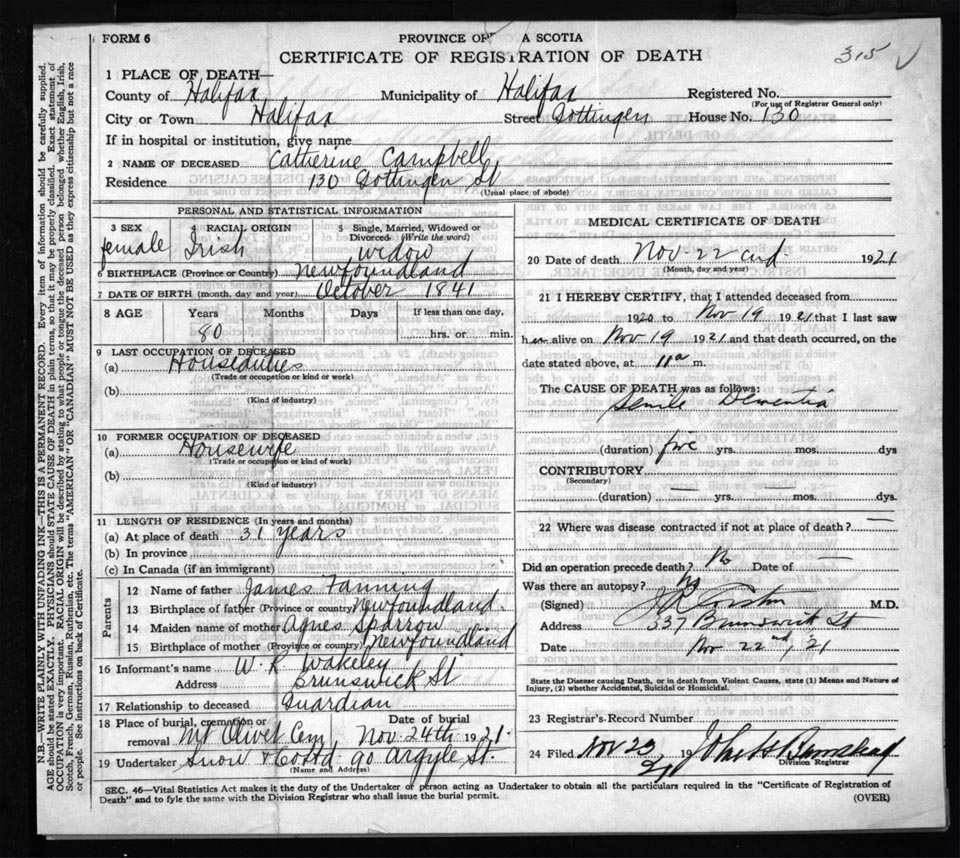 FORM 6
PROVINCE OF A SCOTIA
315
CERTIFICATE OF REGISTRATION OF DEATH
1 PLACE OF DEATH—
County of Halifax Municipality of Halifax Registered No.
(For use of Registrar General only)
City or Town Halifax Street Gottingen House No. 130
If in hospital or institution, give name
2 NAME OF DECEASED Catherine Campbell
Residence 130 Gottingen St
(Usual place of abode)
PERSONAL AND STATISTICAL INFORMATION
3 SEX 4 RACIAL ORIGIN 5 Single, Married, Widowed or Divorced (Write the word)
female Irish widow
6 BIRTHPLACE (Province or Country) Newfoundland
7 DATE OF BIRTH (month, day and year) October 1841
8 AGE Years Months Days If less than one day,
80 hrs. or min.
9 LAST OCCUPATION OF DECEASED
(a) Houseduties
(Trade or occupation or kind of work)
(b)
(Kind of industry)
10 FORMER OCCUPATION OF DECEASED
(a) Housewife
(Trade or occupation or kind of work)
(b)
(Kind of industry)
11 LENGTH OF RESIDENCE (In years and months)
(a) At place of death 31 years
(b) In province
(c) In Canada (if an immigrant)
Parents
12 Name of father James Fanning
13 Birthplace of father (Province or country) Newfoundland
14 Maiden name of mother Agnes Sparrow
15 Birthplace of mother (Province or country) Newfoundland
16 Informant's name W. R. Wakeley
Address Brunswick St
17 Relationship to deceased Guardian
18 Place of burial, cremation or removal Mt Olivet Cem Date of burial Nov. 24th 1921.
19 Undertaker Snow & Co Ltd 90 Argyle St.
(Name and Address)
MEDICAL CERTIFICATE OF DEATH
20 Date of death Nov-22nd 1921
(Month, day and year)
21 I HEREBY CERTIFY, that I attended deceased from
1920 to Nov 19 1921 that I last saw
her alive on Nov 19 1921 and that death occurred, on the
date stated above, at 11a m.
The CAUSE OF DEATH was as follows:
Senile Dementia
(duration) five yrs. mos. dys
CONTRIBUTORY
(Secondary)
(duration) — yrs. mos. dys.
22 Where was disease contracted if not at place of death? —
Did an operation precede death? No Date of —
Was there an autopsy? No
(Signed) M.D.
Address 337 Brunswick St
Date Nov 22nd, 21
State the Disease causing Death, or in death from Violent Causes, state (1) Means and Nature of Injury, (2) whether Accidental, Suicidal or Homicidal.
23 Registrar's Record Number
24 Filed Nov 23 19 21 John H Barnstead
Division Registrar
SEC. 46—Vital Statistics Act makes it the duty of the Undertaker or person acting as Undertaker to obtain all the particulars required in the "Certificate of Registration of
Death" and to fyle the same with the Division Registrar who shall issue the burial permit.
(OVER)
N.B.—WRITE PLAINLY WITH UNFADING INK—THIS IS A PERMANENT RECORD. Every item of information should be carefully supplied.
AGE should be stated EXACTLY. PHYSICIANS should STATE CAUSE OF DEATH in plain terms, so that it may be properly classified. Exact statement of
OCCUPATION is very important. RACIAL ORIGIN will be described by stating to what people or tongue the deceased person belonged whether English, Irish,
Scotch, French, German, Russian, Ruthenian, etc. The terms "AMERICAN" OR "CANADIAN" MUST NOT BE USED as they express citizenship but not a race
or people. See instructions on back of Certificate.